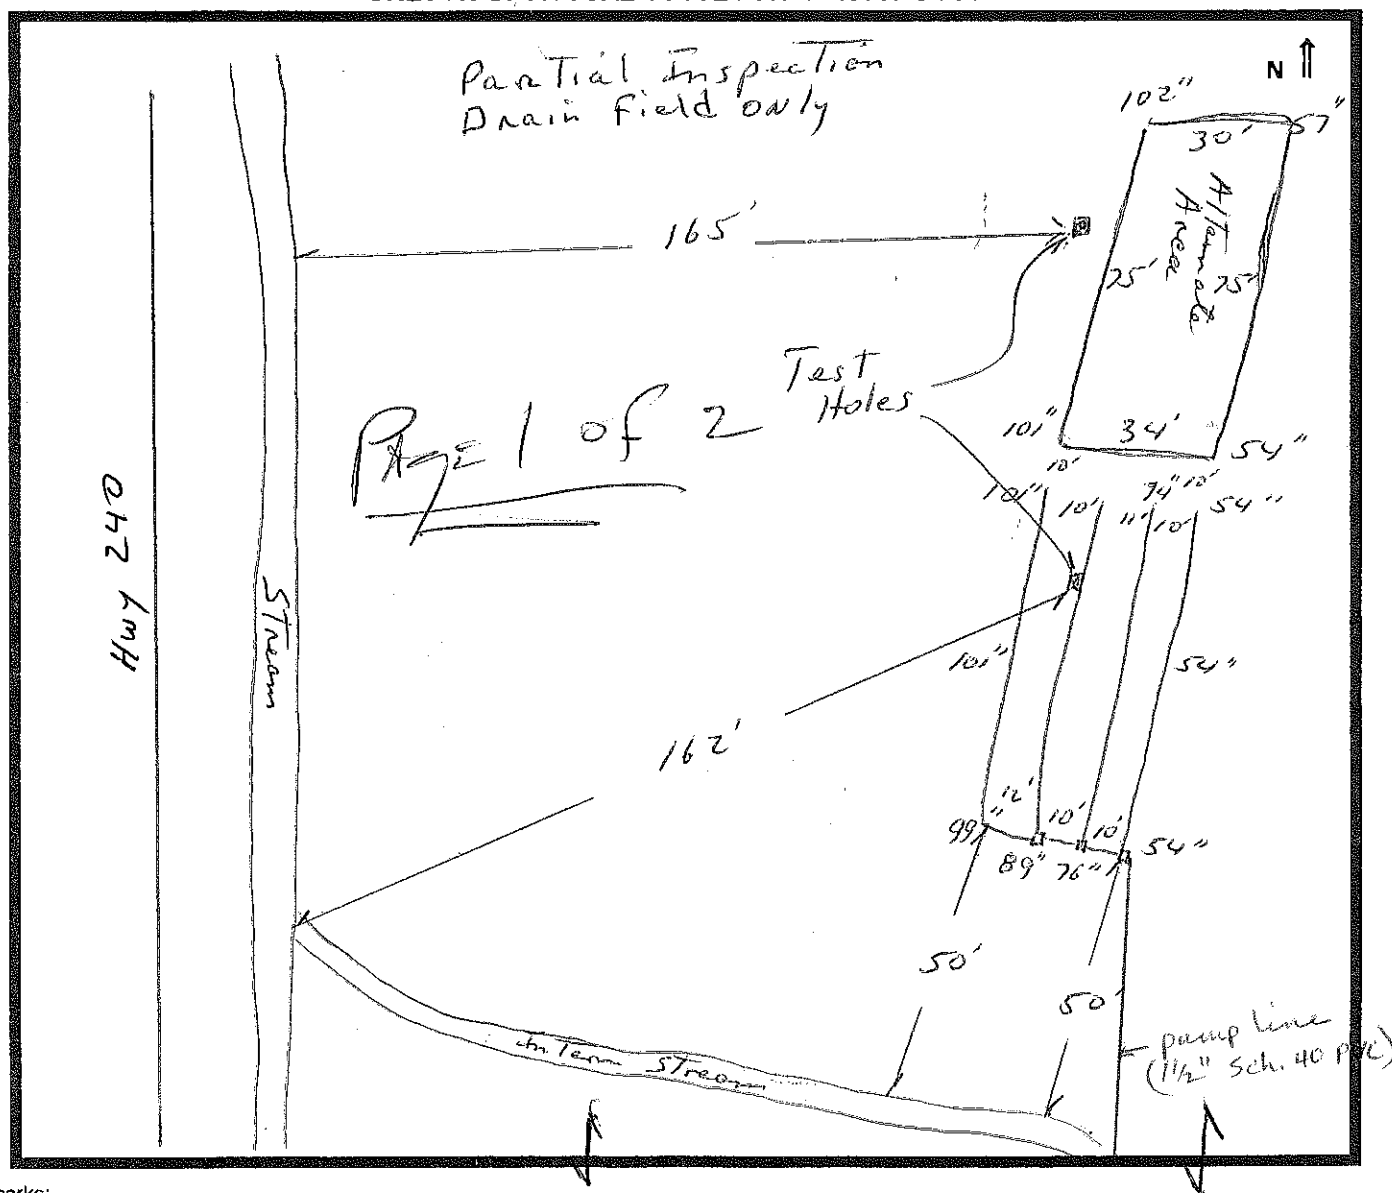 Partial Inspection
Drain field only
N
102"
57"
30'
Alternate
Area
165'
75'
75'
Test
Holes
Page 1 of 2
101"
34'
54"
10'
10'
101"
10'
94"
11'
10'
54"
Hwy 240
Stream
101"
54"
162'
12'
10'
10'
99"
89"
76"
54"
50'
50'
pump line
(1 1/2" Sch. 40 PVC)
Interm Stream